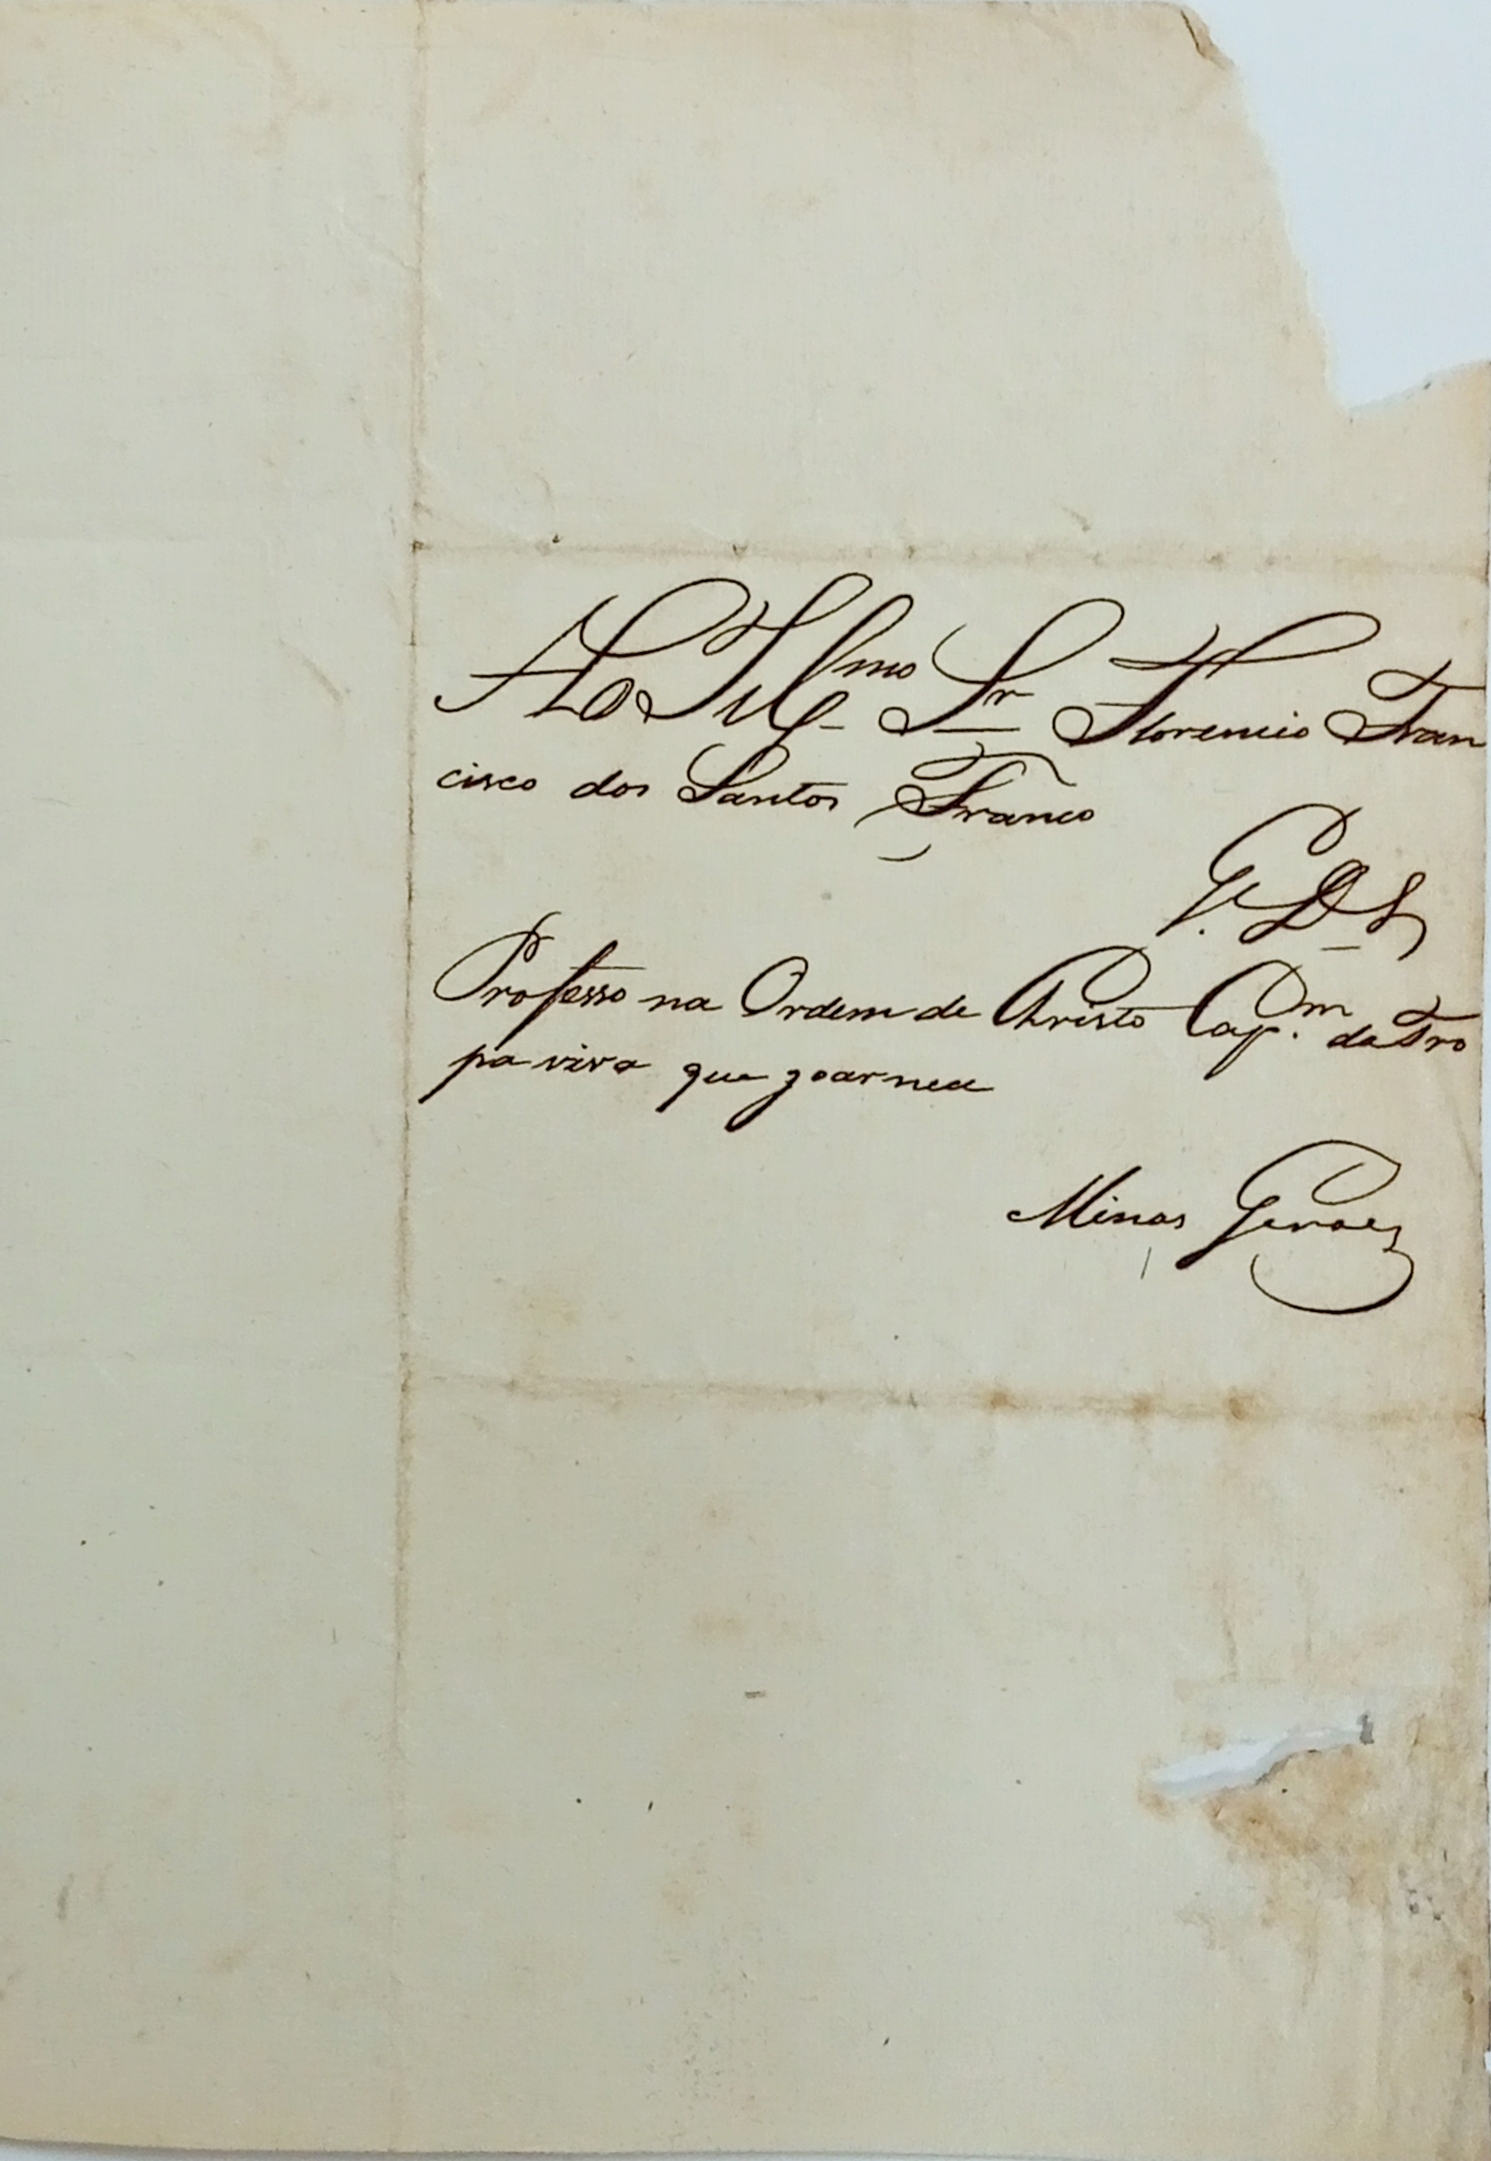 Ao Ill.mo Sr Florencio Fran
cisco dos Santos Franco
G. D S
Professo na Ordem de Christo Cap.m da Tro
pa viva que goarnece
Minas Geraes